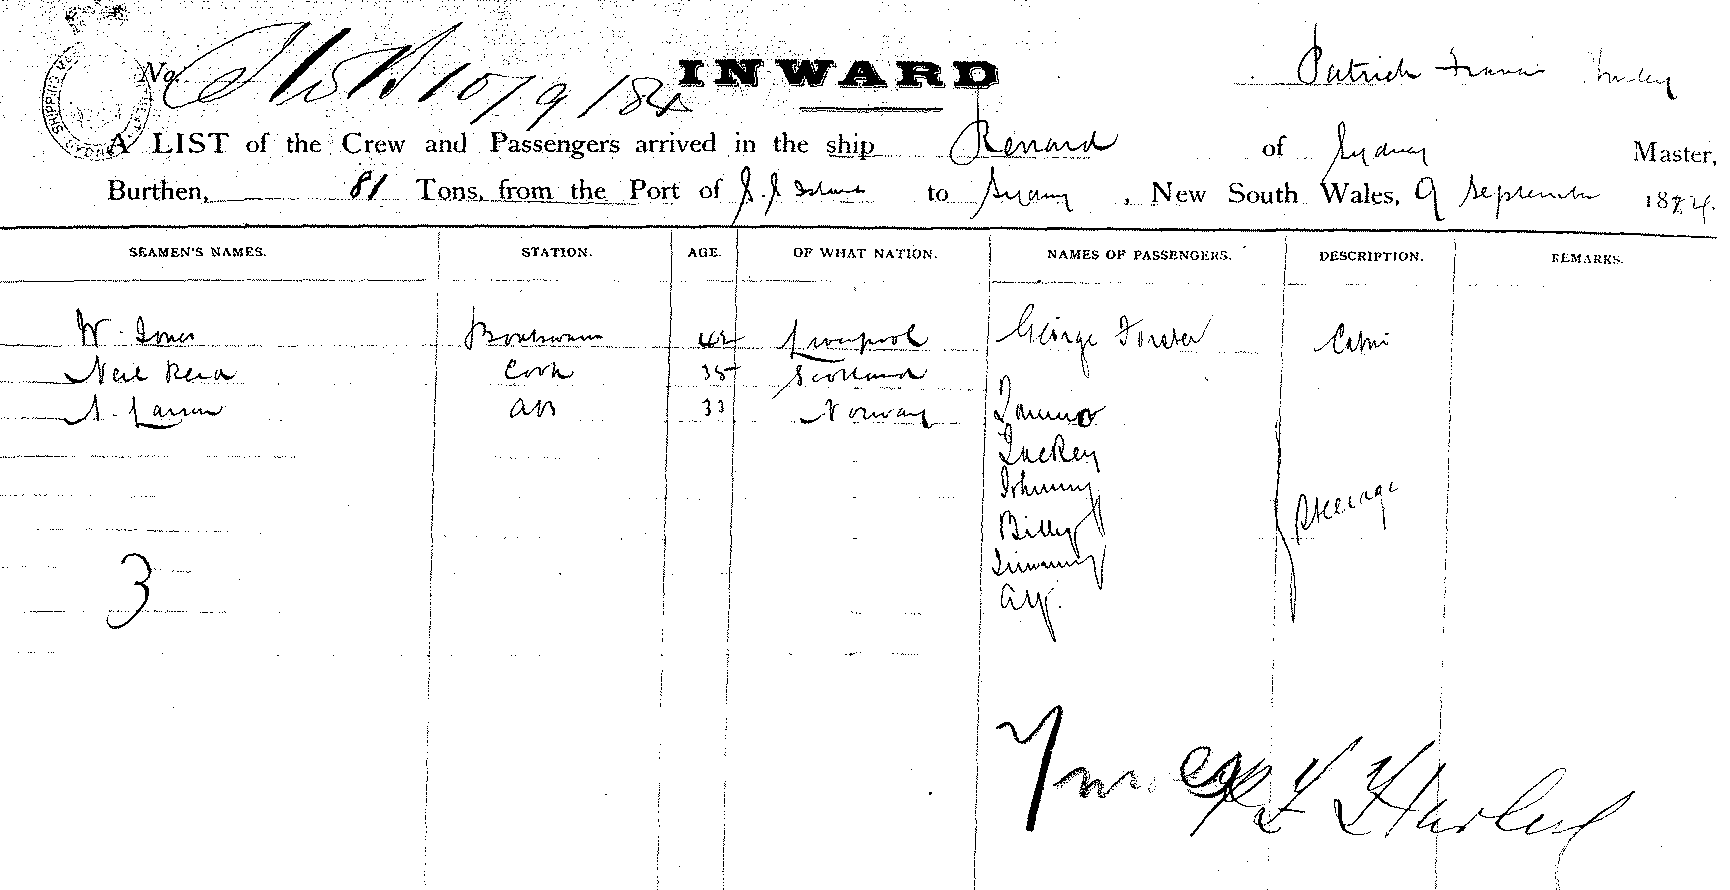 No 10/9/84 INWARD Patrick Francis
A LIST of the Crew and Passengers arrived in the ship Renard of Sydney Master,
Burthen, 81 Tons, from the Port of S. S Islands to Sydney, New South Wales, 9 September 1884.
SEAMEN'S NAMES. STATION. AGE. OF WHAT NATION. NAMES OF PASSENGERS. DESCRIPTION. REMARKS.
W. Jones Boatswain 42 Liverpool George Forster Cabin
Neil Reid Cook 35 Scotland
A. Larsen AB 33 Norway
Lackey
Johnny
Billy Steerage
Jimmy
3